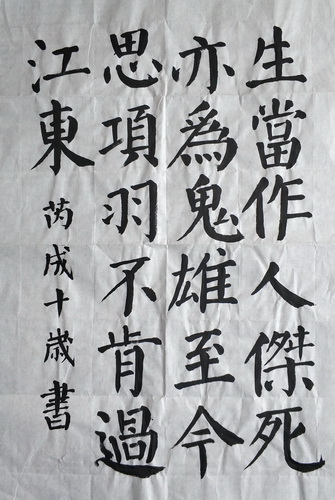 生當作人傑死
亦為鬼雄至今
思項羽不肯過
江東
芮成十歲書